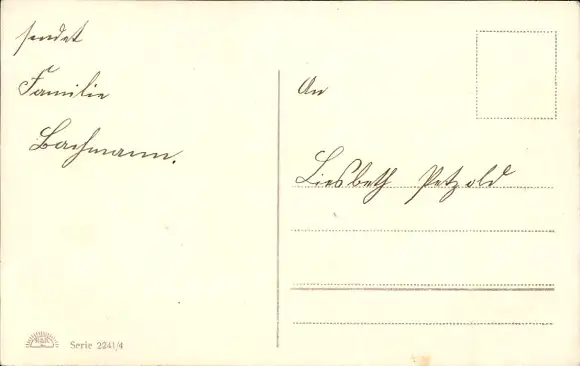 sendet
Familie
Bachmann.
An
Liesbeth Petzold
Serie 2241/4